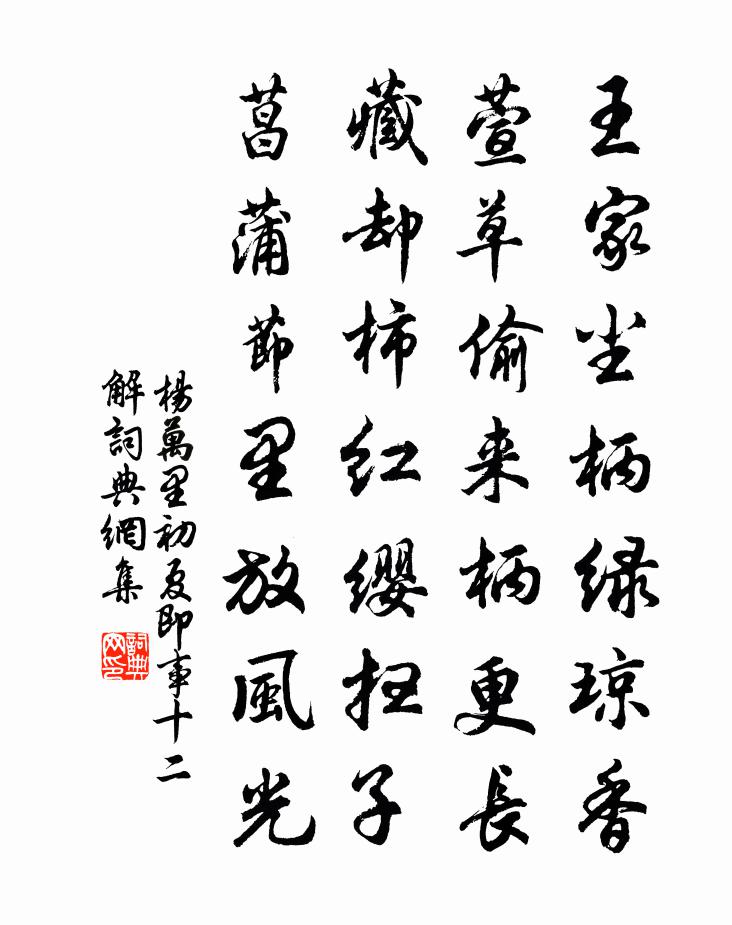 王家尘柄绿琼香
萱草偷来柄更長
藏却柿红缨子
菖蒲莭里放風光
楊萬里初夏即事十二
解詞典網集
詞典网印